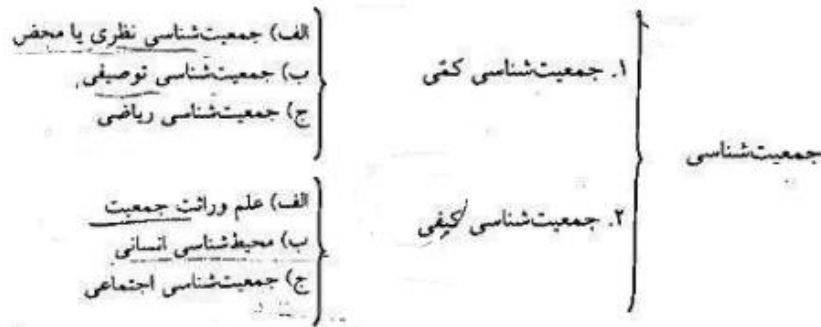 جمعیت‌شناسی
۱. جمعیت‌شناسی کمّی
الف) جمعیت‌شناسی نظری یا محض
ب) جمعیت‌شناسی توصیفی
ج) جمعیت‌شناسی ریاضی
۲. جمعیت‌شناسی کیفی
الف) علم وراثت جمعیت
ب) محیط‌شناسی انسانی
ج) جمعیت‌شناسی اجتماعی